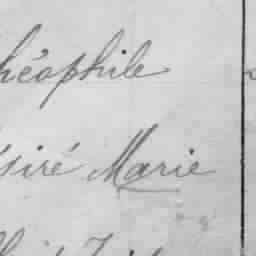 héophile
siré Marie